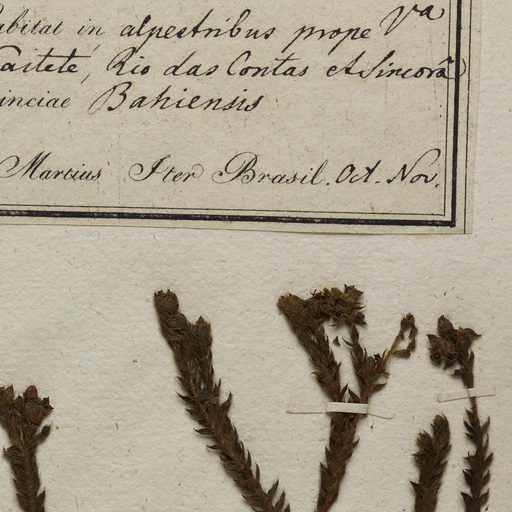 abitat in alpestribus prope Va
Caitete, Rio das Contas et Sincorá
inciae Bahiensis
Martius Iter Brasil. Oct. Nov.